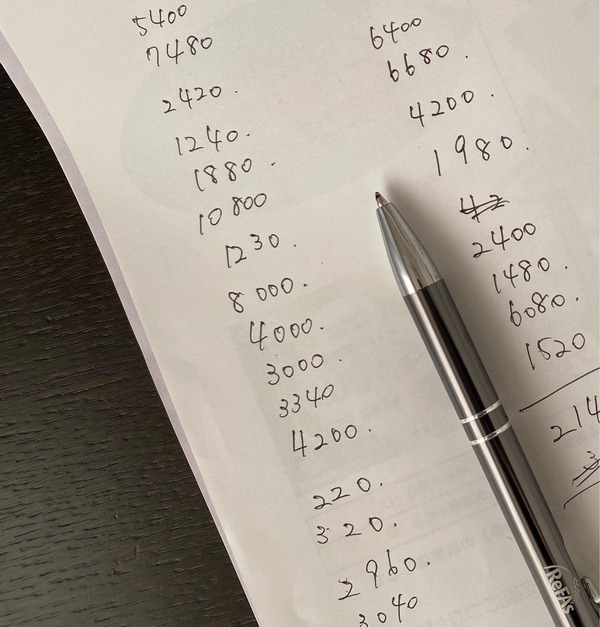 5400
7480
2420.
1240.
1880.
10800
1230.
8000.
4000.
3000.
3340
4200.
220.
320.
2960.
3040
6400
6680.
4200.
1980.
2400
1480.
6080.
1520
214
ReFAs